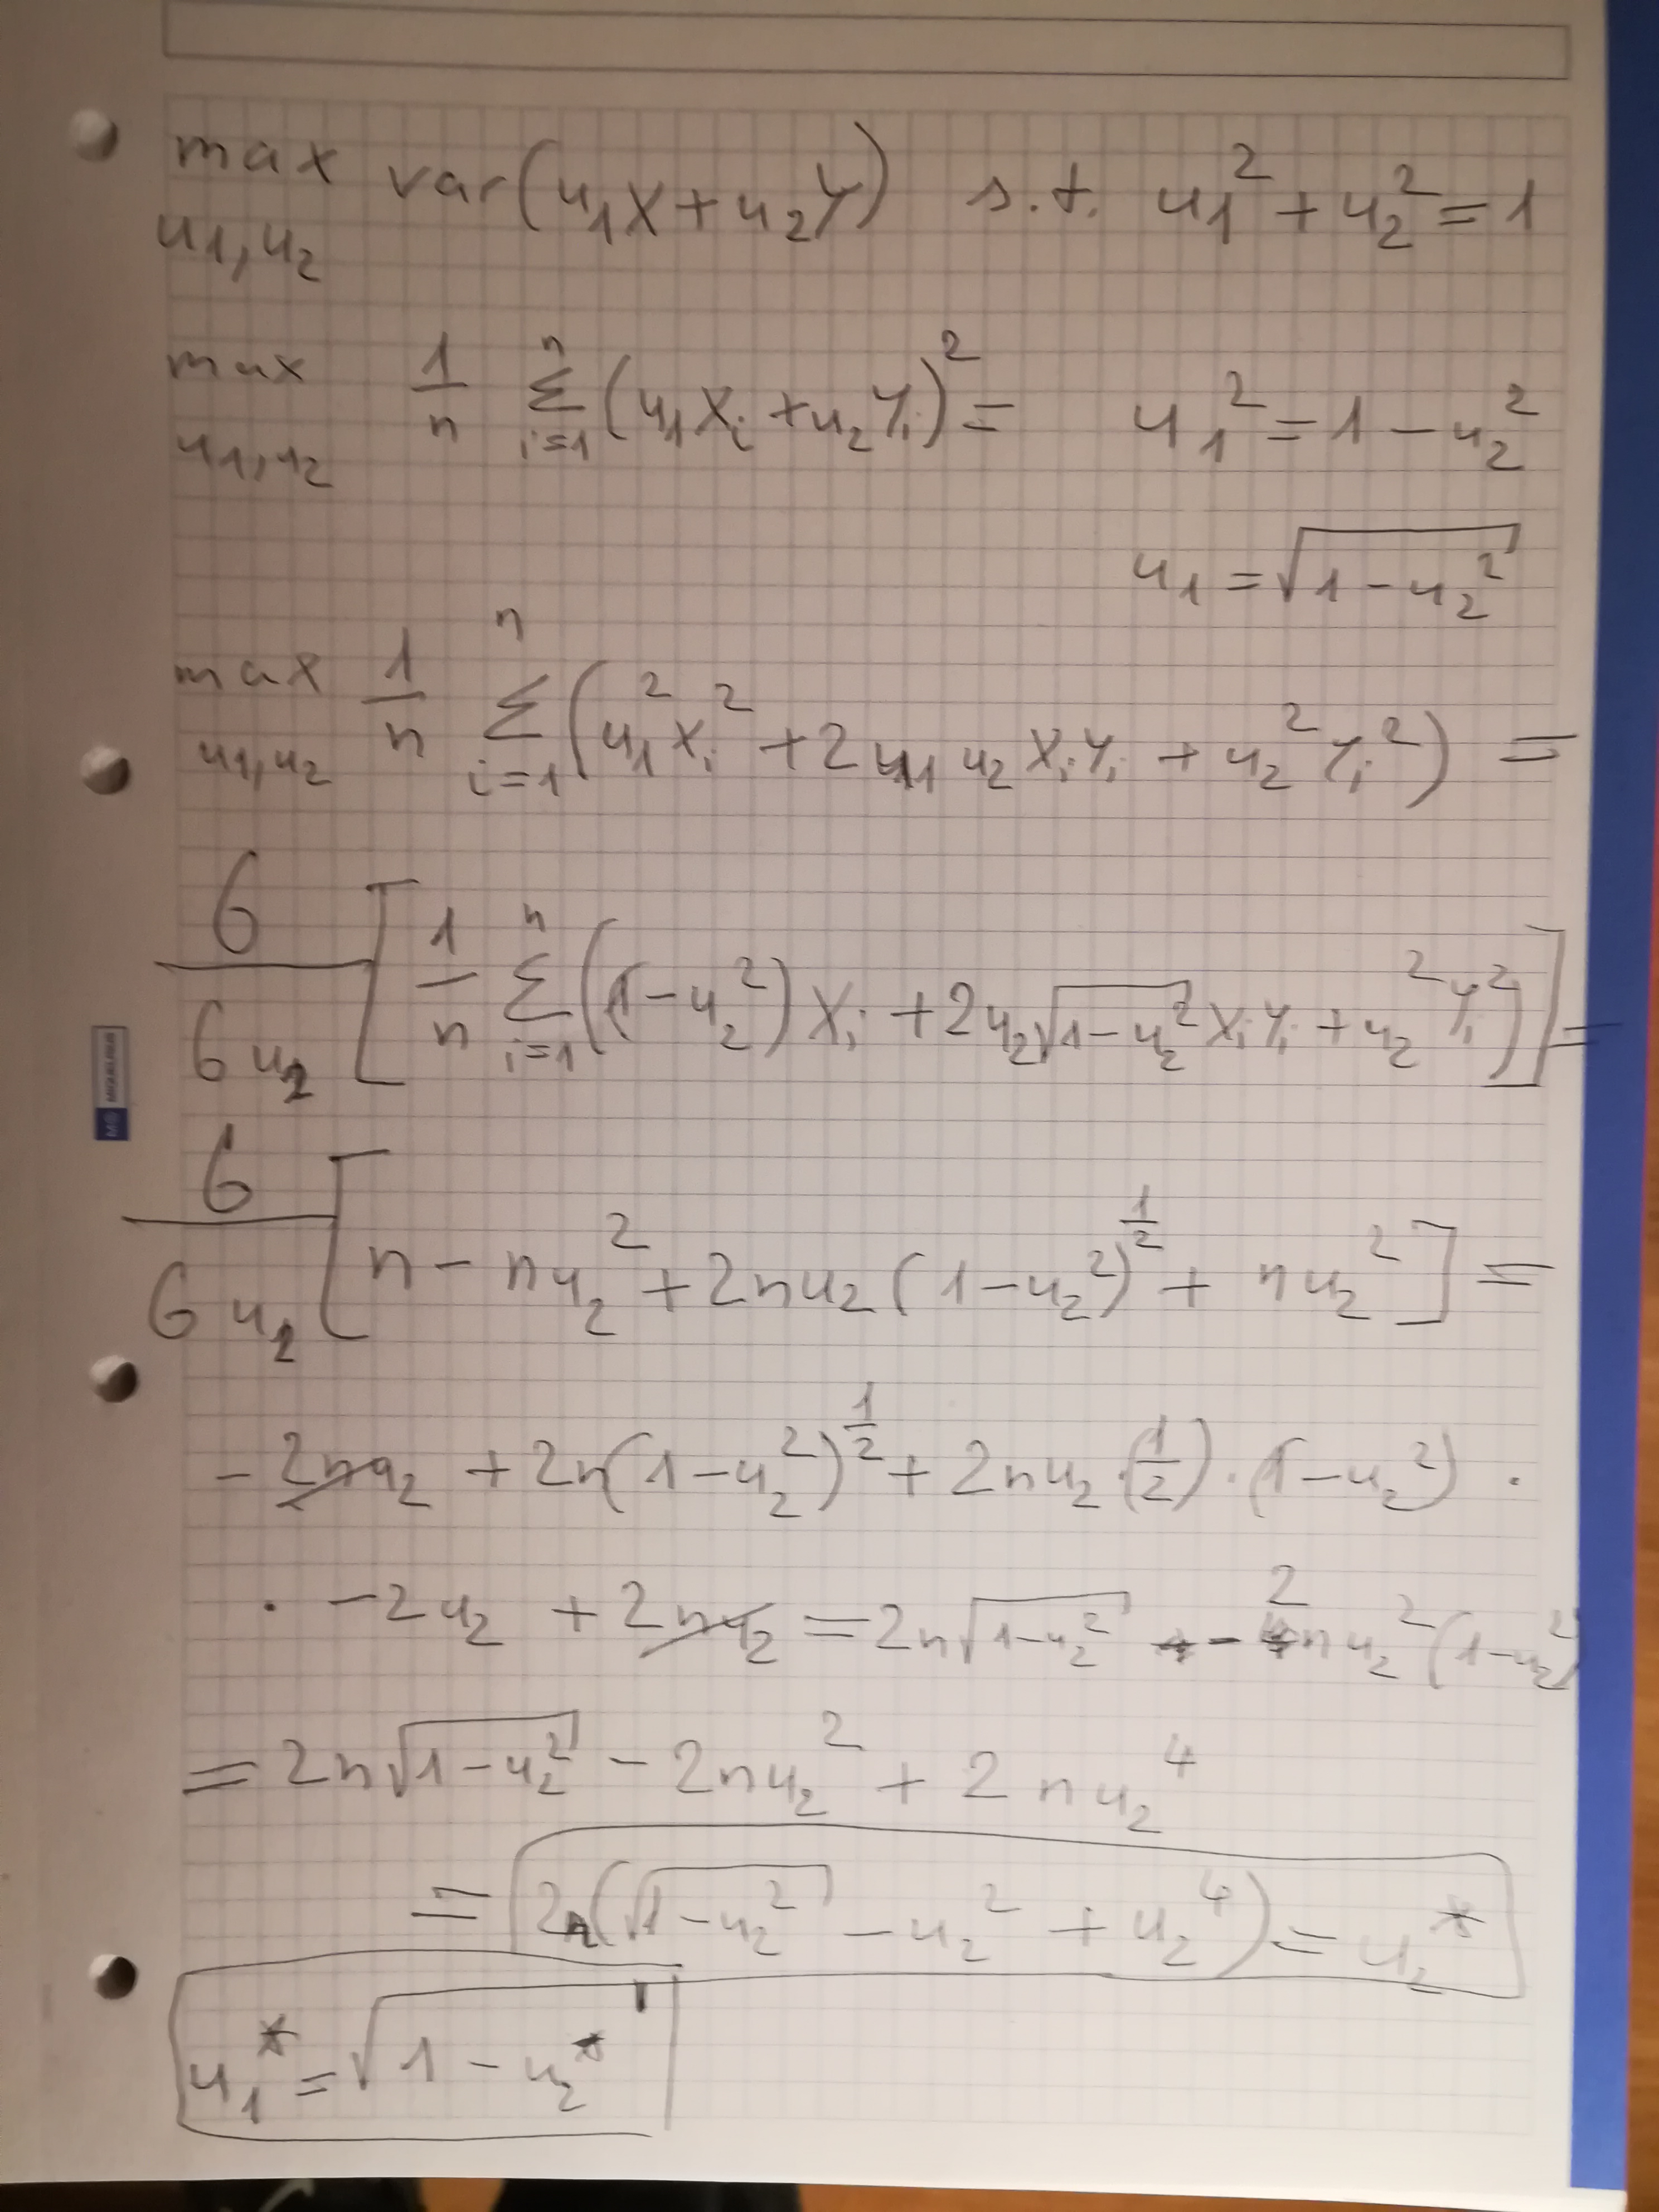 max var(u₁X+u₂Y) s.t. u₁²+u₂²=1
u₁,u₂
max 1/n Σ_{i=1}^{n} (u₁Xᵢ+u₂Yᵢ)² = u₁²=1-u₂²
u₁,u₂
u₁=√(1-u₂²)
max 1/n Σ_{i=1}^{n} (u₁²Xᵢ²+2u₁u₂XᵢYᵢ+u₂²Yᵢ²) =
u₁,u₂
6/6u₂ [1/n Σ_{i=1}^{n} ((1-u₂²)Xᵢ+2u₂√(1-u₂²)XᵢYᵢ+u₂²Yᵢ²)] =
6/6u₂ [n-nu₂²+2nu₂(1-u₂²)^{1/2}+nu₂²] =
-2nu₂+2n(1-u₂²)^{1/2}+2nu₂·(1/2)·(1-u₂²) ·
· -2u₂+2nu₂=2n√(1-u₂²) - 2nu₂²(1-u₂²)
=2n√(1-u₂²)-2nu₂²+2nu₂⁴
=2n(√(1-u₂²)-u₂²+u₂⁴)=u₂*
u₁*=√(1-u₂*)